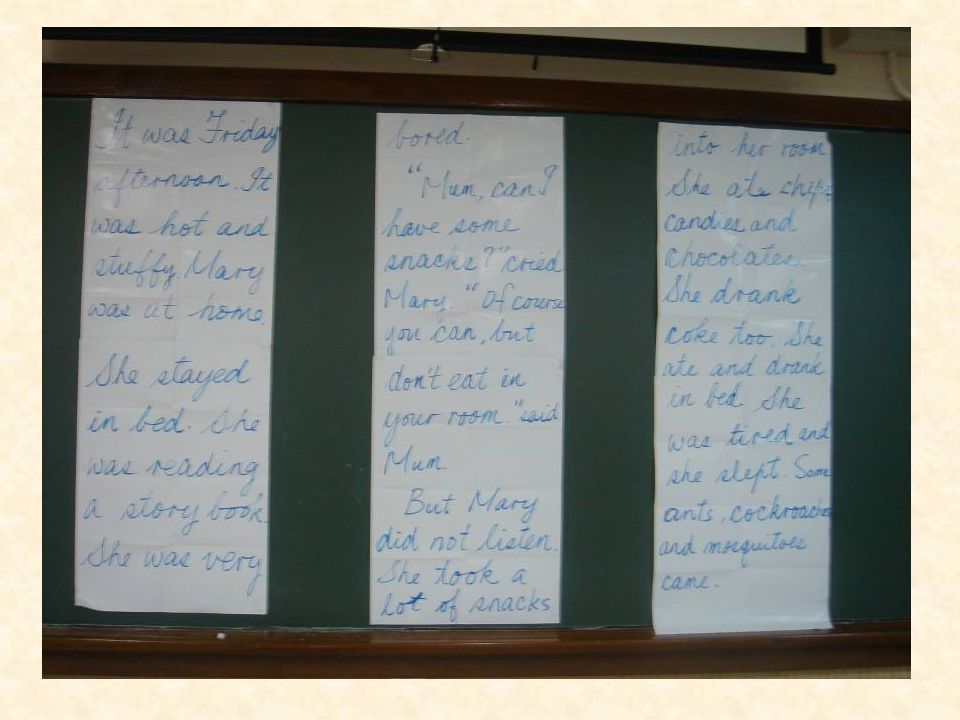 It was Friday
afternoon. It
was hot and
stuffy. Mary
was at home.
She stayed
in bed. She
was reading
a story book.
She was very
bored.
"Mum, can I
have some
snacks?" cried
Mary. "Of course
you can, but
don't eat in
your room." said
Mum.
But Mary
did not listen.
She took a
lot of snacks
into her room
She ate chips,
candies and
chocolates.
She drank
coke too. She
ate and drank
in bed. She
was tired and
she slept. Some
ants, cockroaches
and mosquitoes
came.